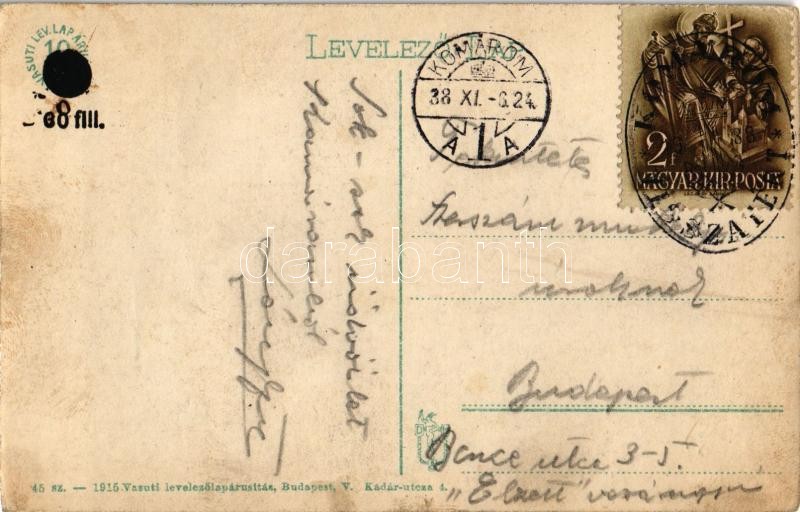 VASUTI LEV.LAP ÁRU
10
60 fill.
LEVELEZŐ-LAP
KOMÁROM
38 XI. -6.24.
A 1 A
KOMÁROM
VISSZATÉRT
2 f
MAGYAR·KIR·POSTA
Sok-sok üdvözlet
Komáromból
Tekintetes
Szerszám
uraknak
Budapest
Bence utca 3-5.
"Elzett" vasárugyár
darabanth
45 sz. — 1915 Vasuti levelezőlapárusitás, Budapest, V. Kádár-utcza 4.